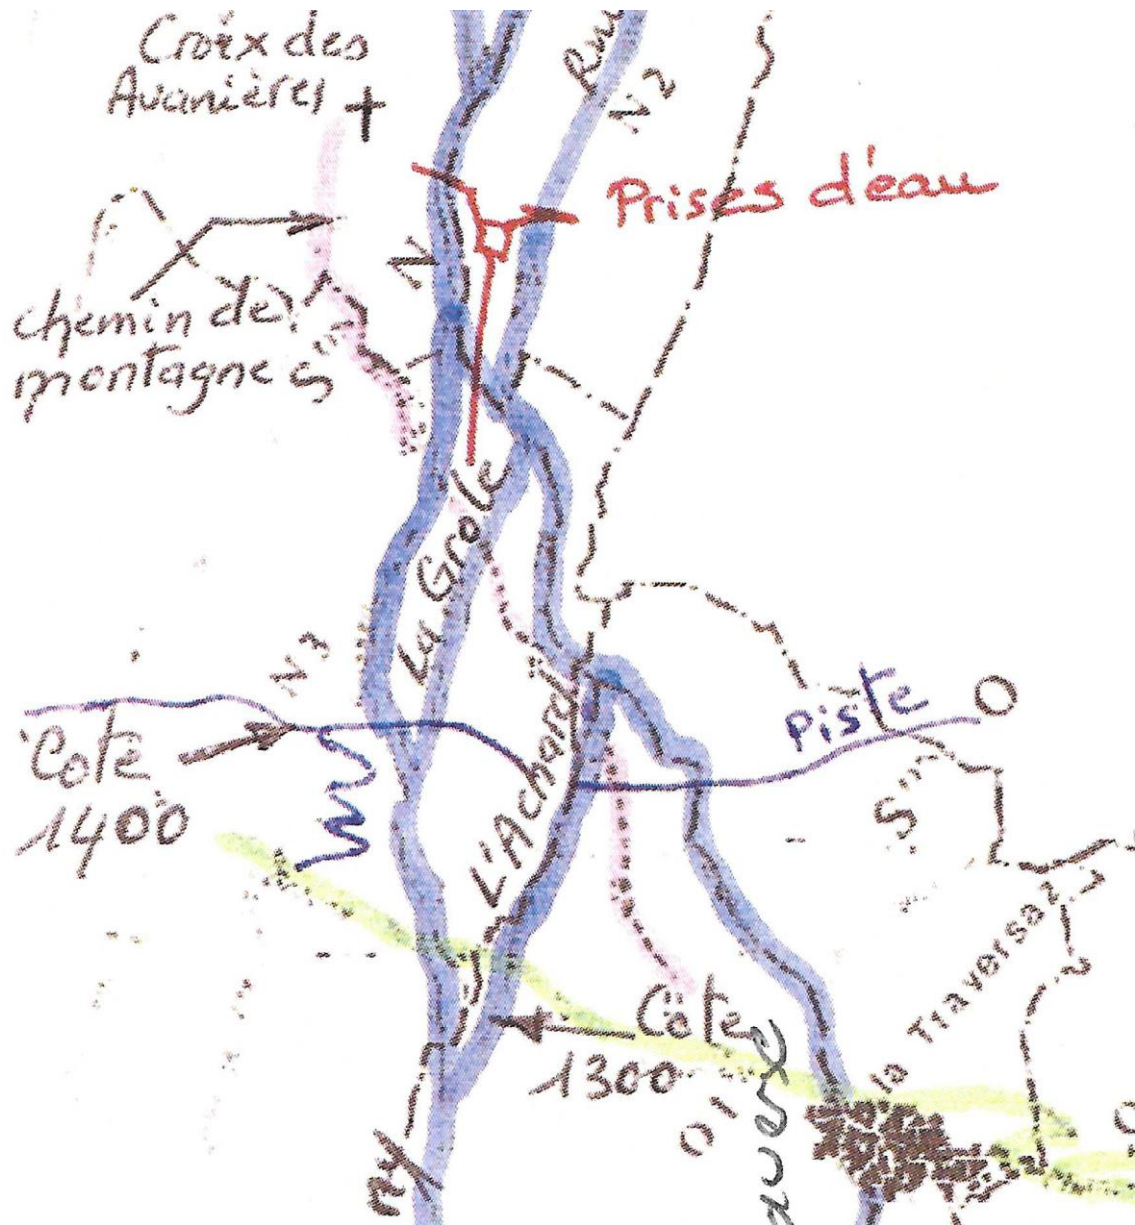 Croix des
Avanières
N2
Prises d'eau
N
chemin de
montagne
La Grole
N3
L'Achard
Piste
Cote
1400
Traversaz
Côte
1300
ny